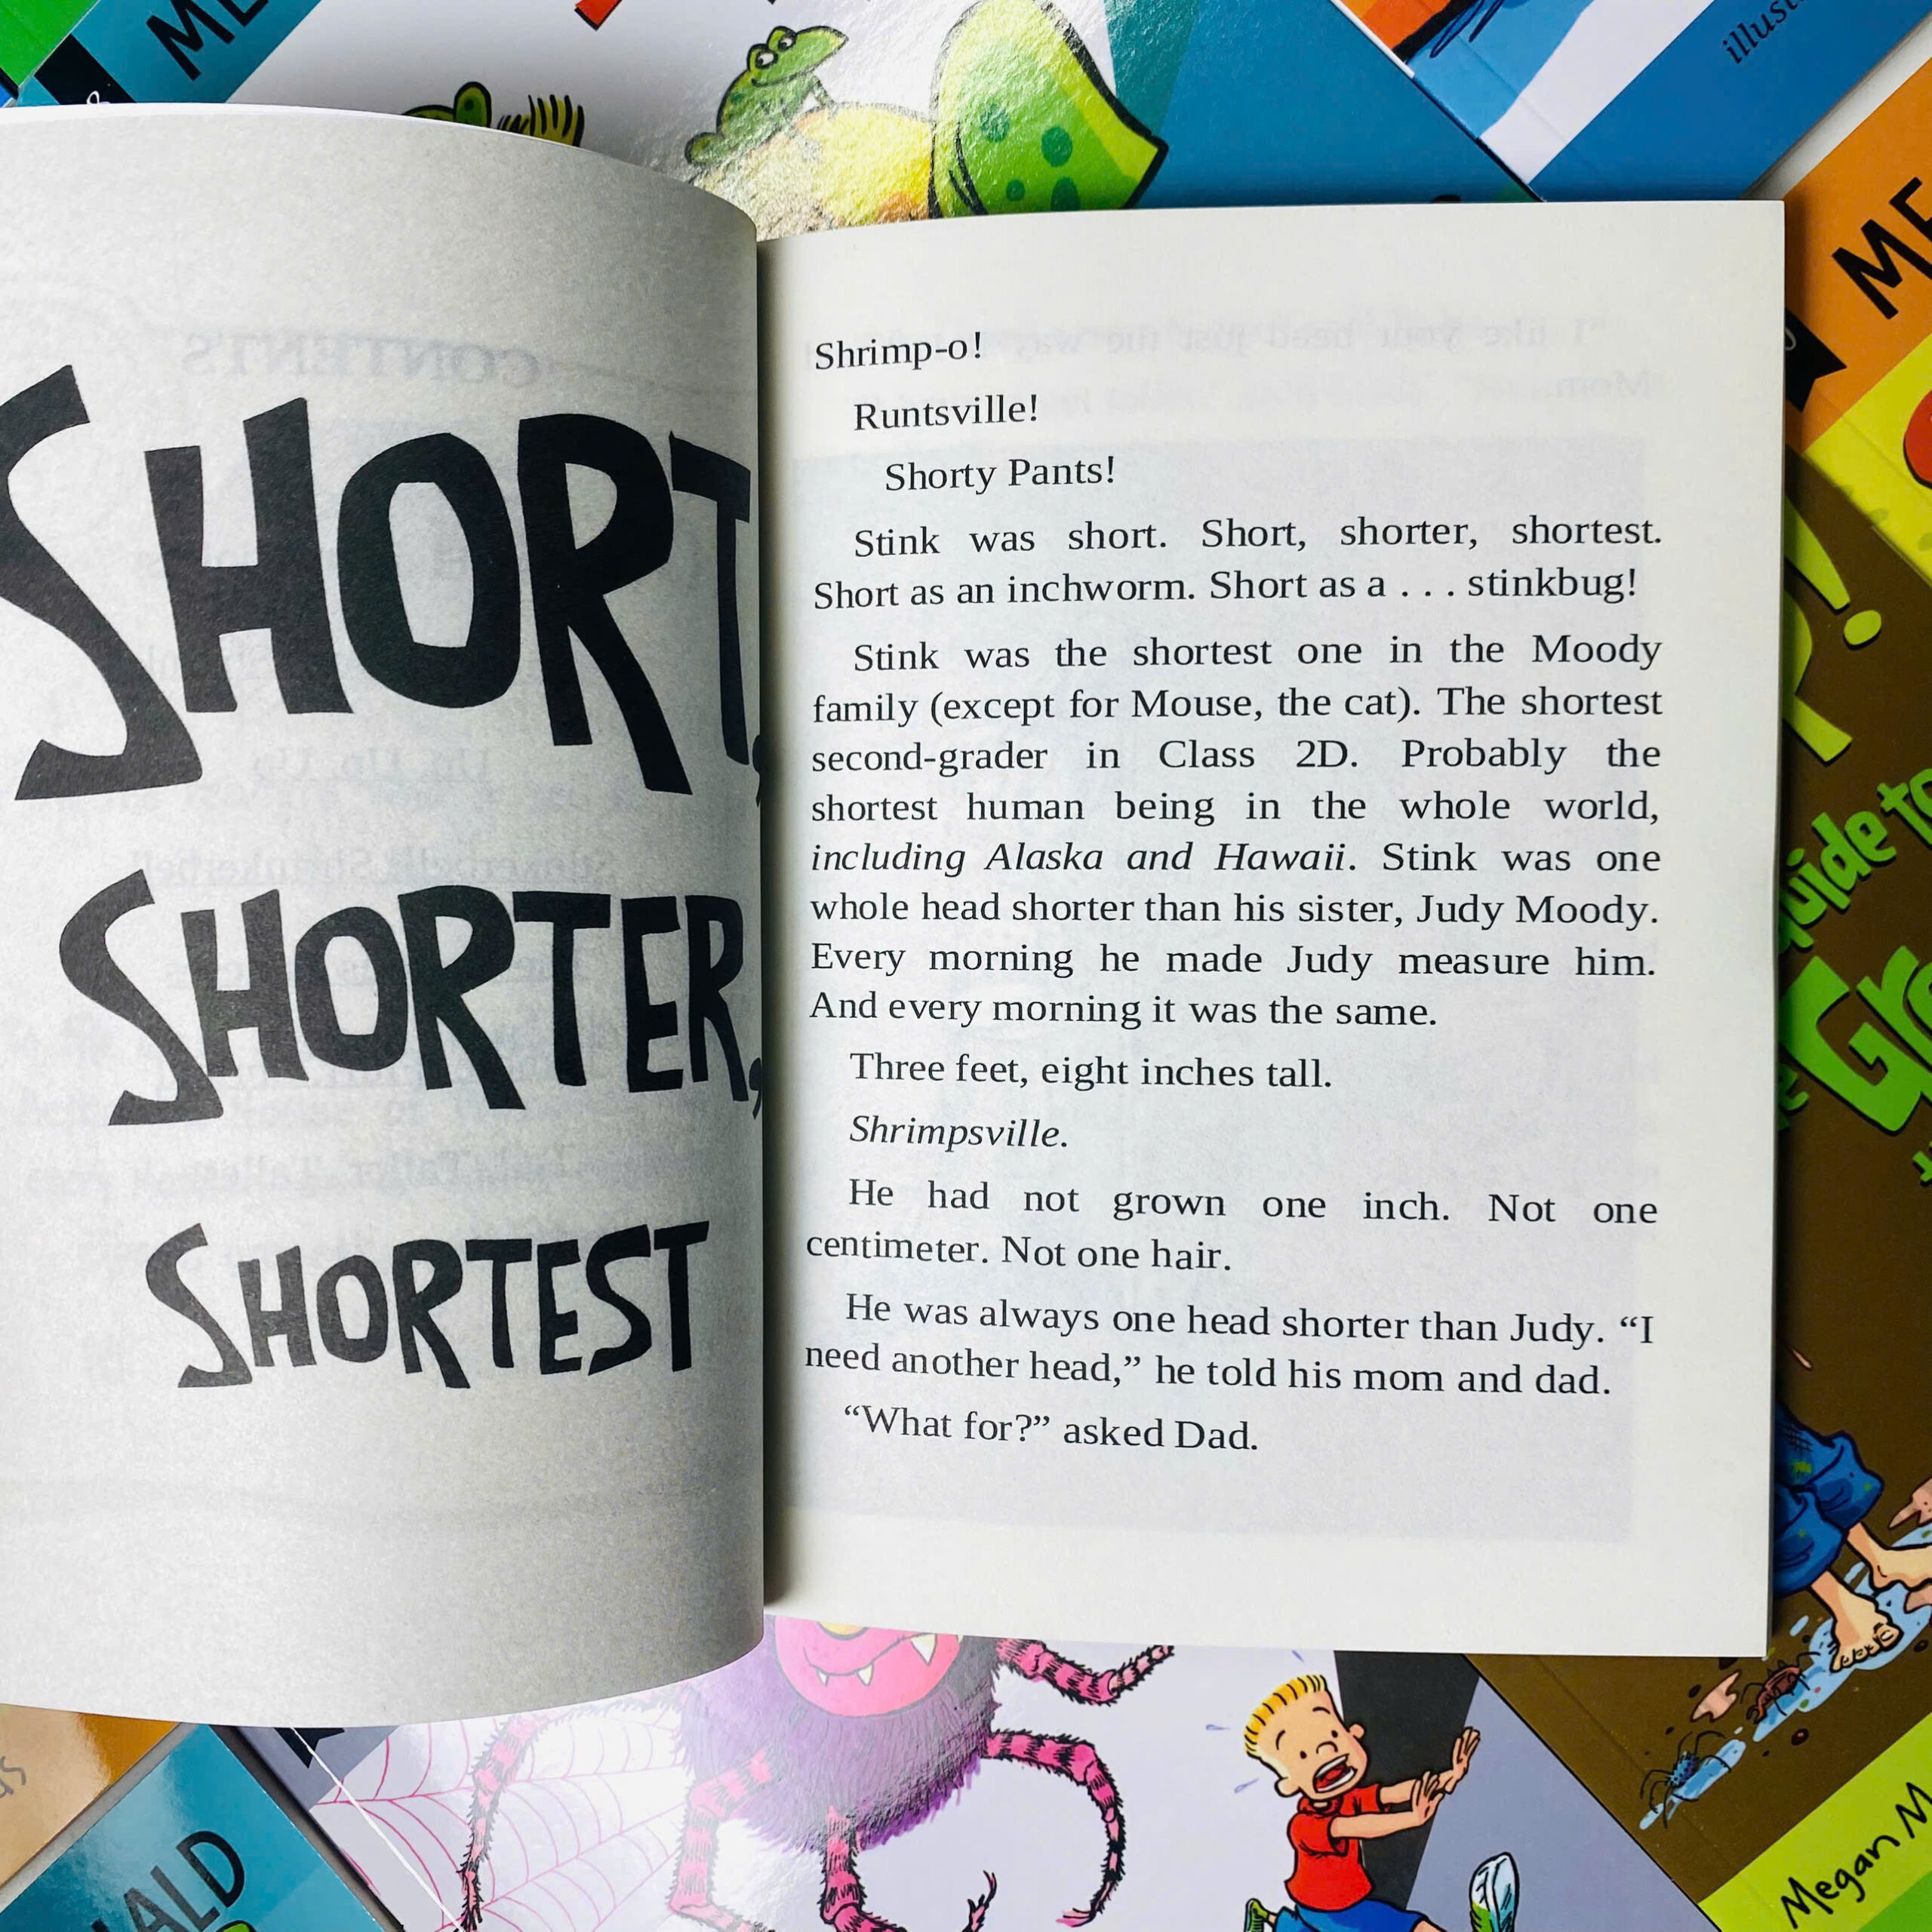 SHORT,
SHORTER,
SHORTEST
Shrimp-o!
Runtsville!
Shorty Pants!
Stink was short. Short, shorter, shortest.
Short as an inchworm. Short as a . . . stinkbug!
Stink was the shortest one in the Moody
family (except for Mouse, the cat). The shortest
second-grader in Class 2D. Probably the
shortest human being in the whole world,
including Alaska and Hawaii. Stink was one
whole head shorter than his sister, Judy Moody.
Every morning he made Judy measure him.
And every morning it was the same.
Three feet, eight inches tall.
Shrimpsville.
He had not grown one inch. Not one
centimeter. Not one hair.
He was always one head shorter than Judy. “I
need another head,” he told his mom and dad.
“What for?” asked Dad.
Megan M